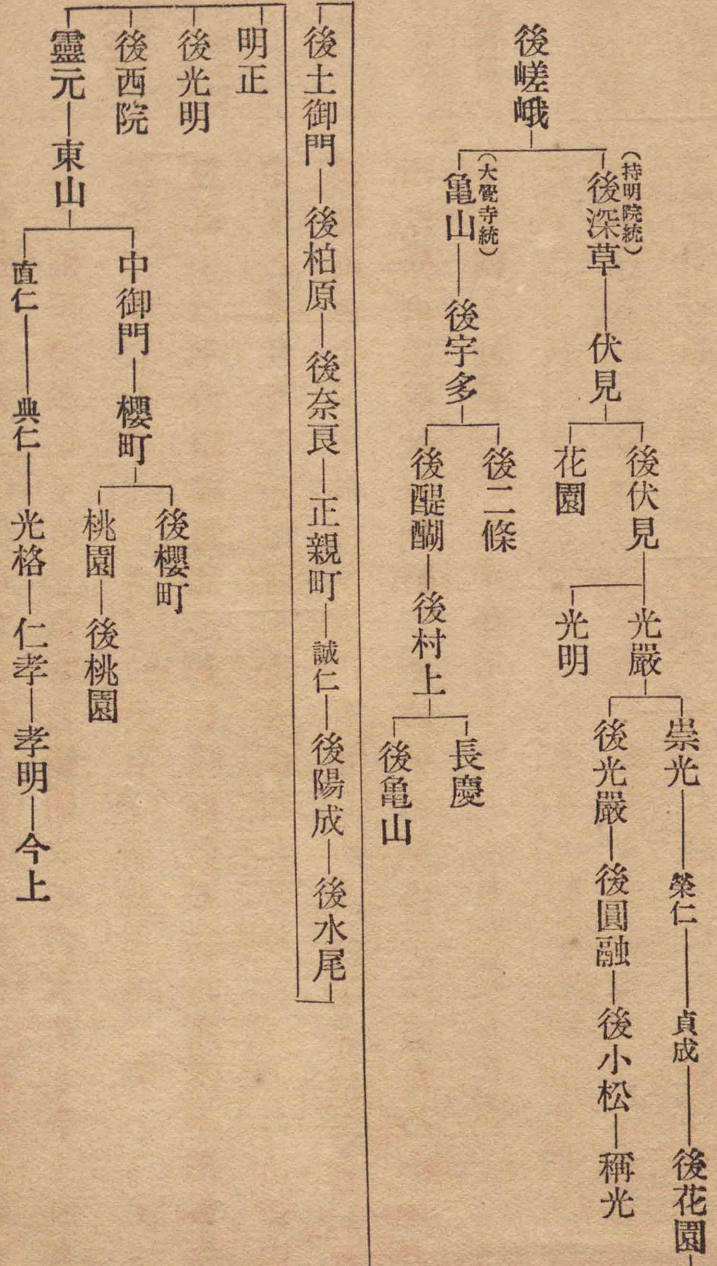 後嵯峨
(持明院統)
後深草
伏見
後伏見
花園
光嚴
光明
崇光
榮仁
貞成
後花園
後光嚴
後圓融
後小松
稱光
(大覺寺統)
亀山
後宇多
後二條
後醍醐
後村上
長慶
後亀山
後土御門
後柏原
後奈良
正親町
誠仁
後陽成
後水尾
明正
後光明
後西院
靈元
東山
中御門
櫻町
後櫻町
桃園
後桃園
直仁
典仁
光格
仁孝
孝明
今上